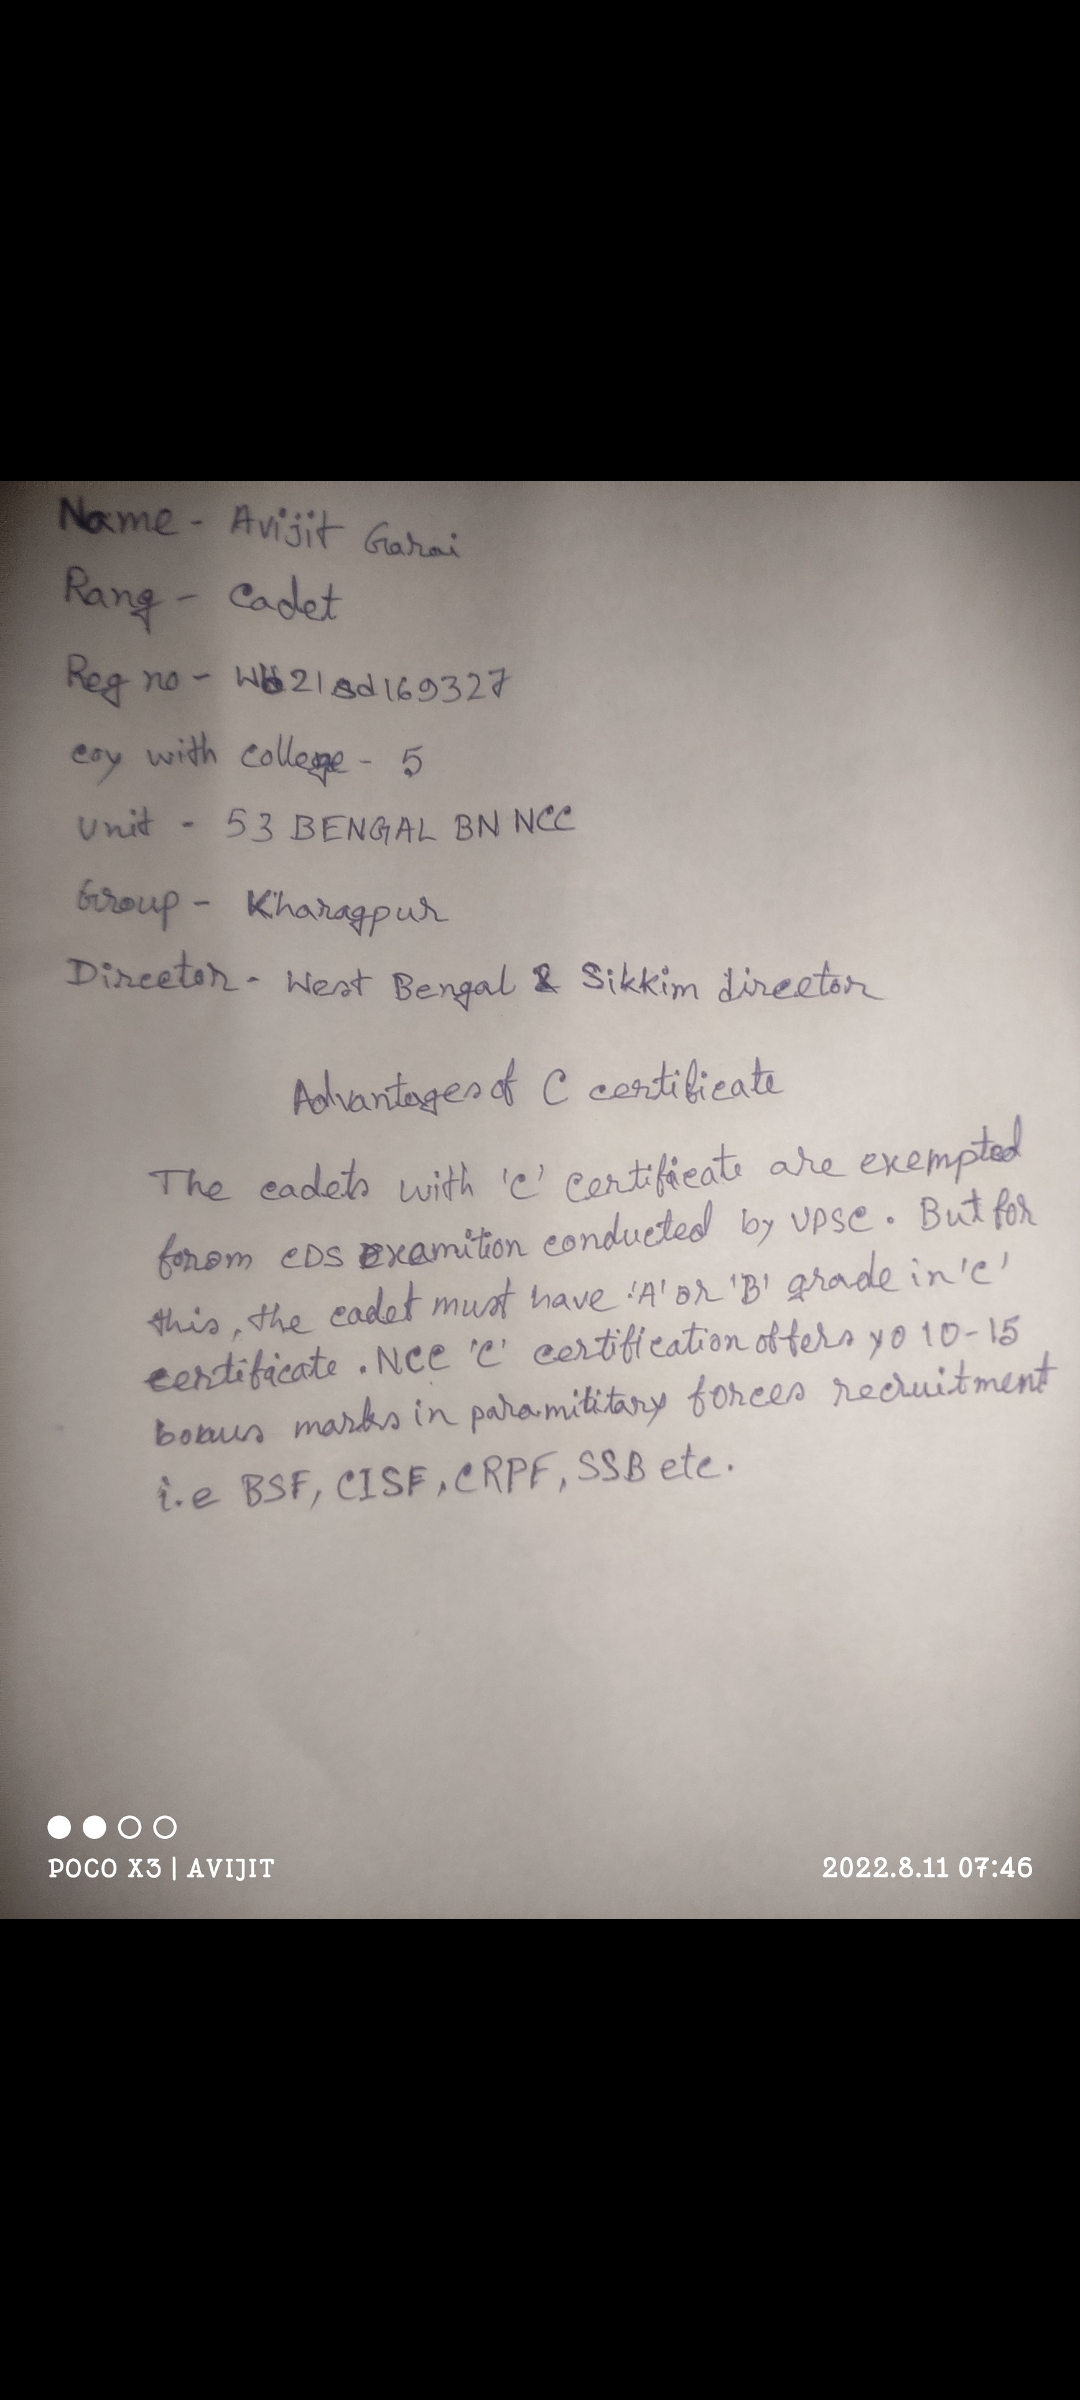 Name - Avijit Garai
Rang - Cadet
Reg no - Wb21sd169327
coy with college - 5
Unit - 53 BENGAL BN NCC
Group - Kharagpur
Director - West Bengal & Sikkim director
Advantages of C certificate
The cadets with 'C' Certificate are exempted
forom CDS Examition conducted by UPSC. But for
this, the cadet must have 'A' or 'B' grade in 'C'
certificate. NCC 'C' certification offers yo 10-15
bonus marks in paramititary forces recruitment
i.e BSF, CISF, CRPF, SSB etc.
POCO X3 | AVIJIT
2022.8.11 07:46